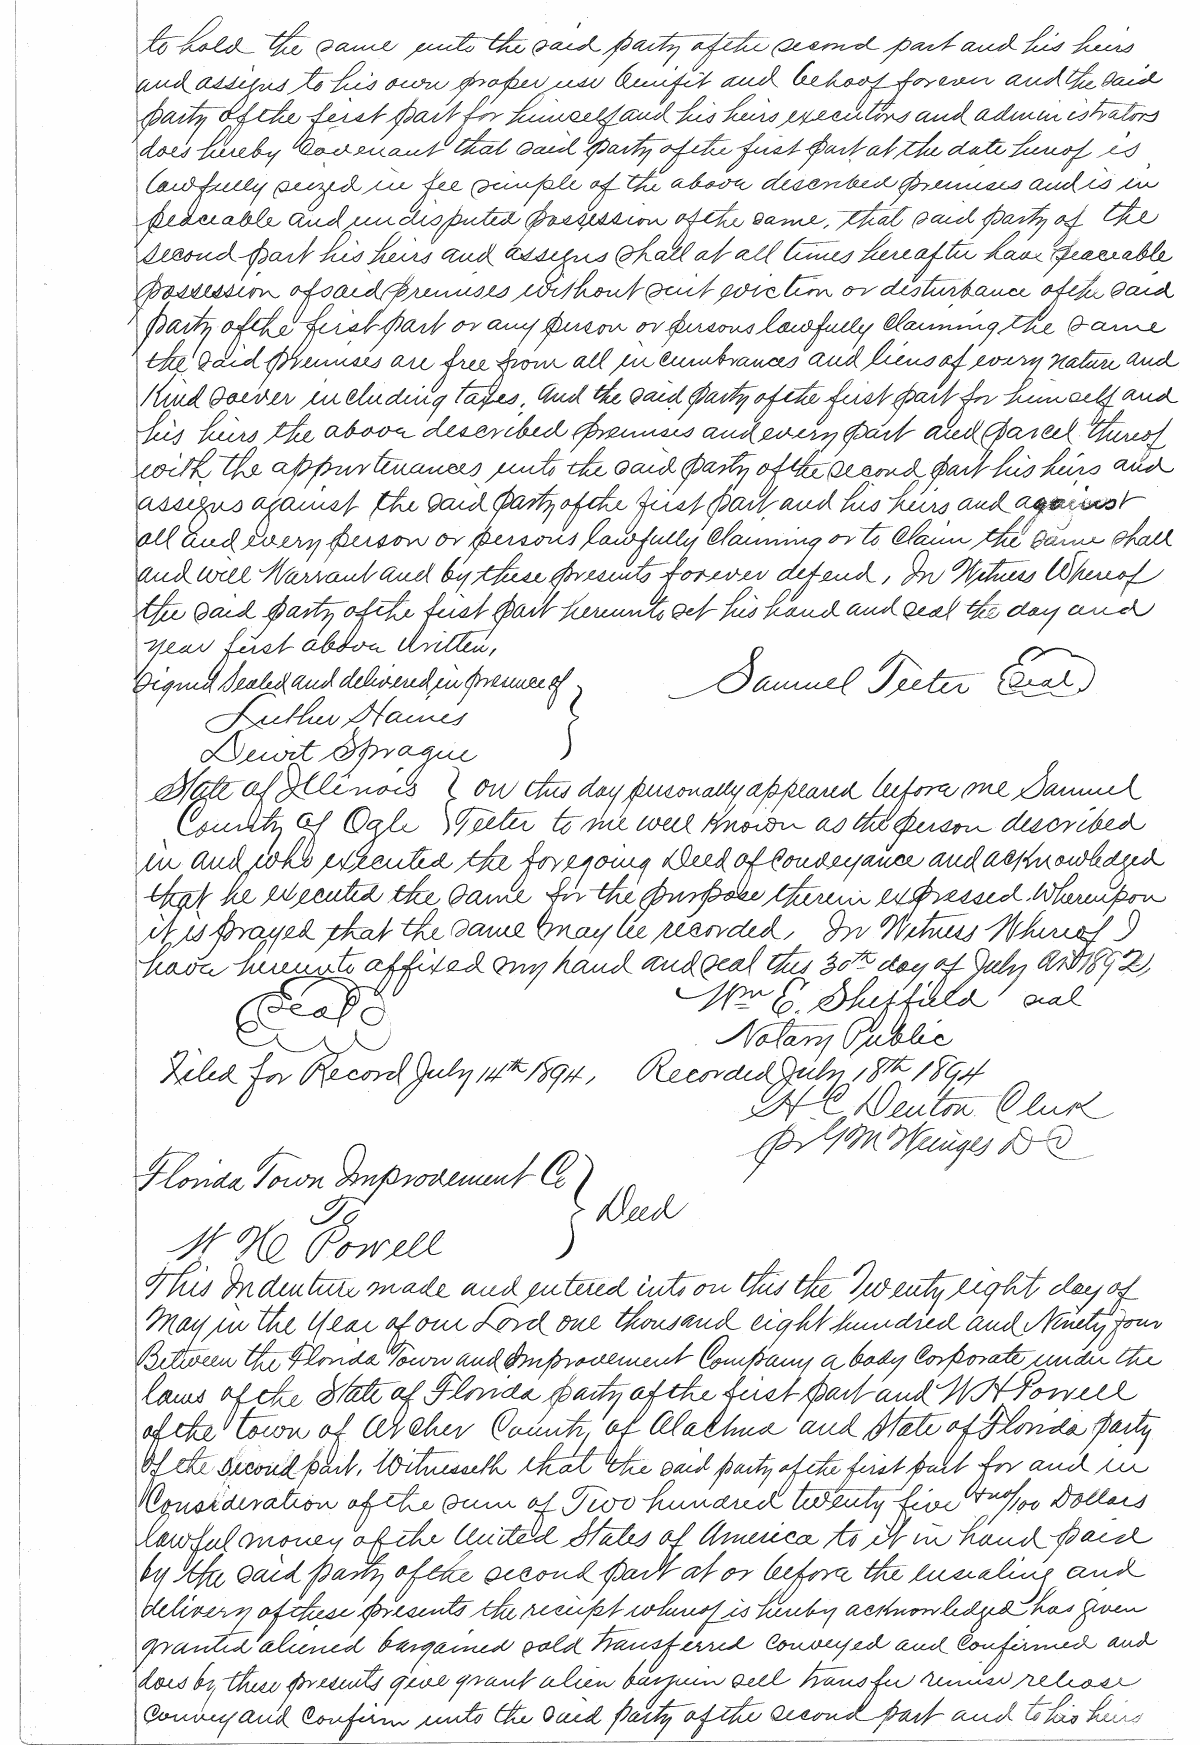 to hold the same unto the said party of the second part and his heirs
and assigns to his own proper use benifit and behoof forever and the said
party of the first part for himself and his heirs executors and administrators
does hereby covenant that said party of the first part at the date hereof is
lawfully seized in fee simple of the above described premises and is in
peaceable and undisputed possession of the same, that said party of the
second part his heirs and assigns shall at all times hereafter have peaceable
possession of said premises without suit eviction or disturbance of the said
party of the first part or any person or persons lawfully claiming the same
the said premises are free from all incumbrances and liens of every nature and
Kind soever including taxes, and the said party of the first part for himself and
his heirs the above described premises and every part and parcel thereof
with the appurtenances unto the said party of the second part his heirs and
assigns against the said party of the first part and his heirs and against
all and every person or persons lawfully claiming or to claim the same shall
and will Warrant and by these presents forever defend, In Witness Whereof
the said party of the first part hereunto set his hand and seal the day and
year first above written,
Signed Sealed and delivered in presence of
Samuel Teeter Seal
Luther Haines
Dewit Sprague
State of Illinois } on this day personally appeared before me Samuel
County of Ogle } Teeter to me well Known as the person described
in and who executed the foregoing Deed of Conveyance and acknowledged
that he executed the same for the purpose therein expressed Whereupon
it is prayed that the same may be recorded, In Witness Whereof I
have hereunto affixed my hand and seal this 30th day of July AD 1892,
Seal
Wm E. Sheffield seal
Notary Public
Filed for Record July 14th 1894, Recorded July 18th 1894
H C Denton Clerk
pr G M Weinges D C
Florida Town Improvement Co
To } Deed
W H Powell
This Indenture made and entered into on this the Twenty eight day of
May in the Year of our Lord one thousand eight hundred and Ninety four
Between the Florida Town and Improvement Company a body Corporate under the
laws of the State of Florida party of the first part and W H Powell
of the town of Archer County of Alachua and State of Florida party
of the second part, Witnesseth that the said party of the first part for and in
Consideration of the sum of Two hundred twenty five + no/100 Dollars
lawful money of the United States of America to it in hand paid
by the said party of the second part at or before the ensealing and
delivery of these presents the receipt whereof is hereby acknowledged has given
granted aliened bargained sold transferred conveyed and confirmed and
does by these presents give grant alien bargain sell transfer remise release
convey and confirm unto the said party of the second part and to his heirs